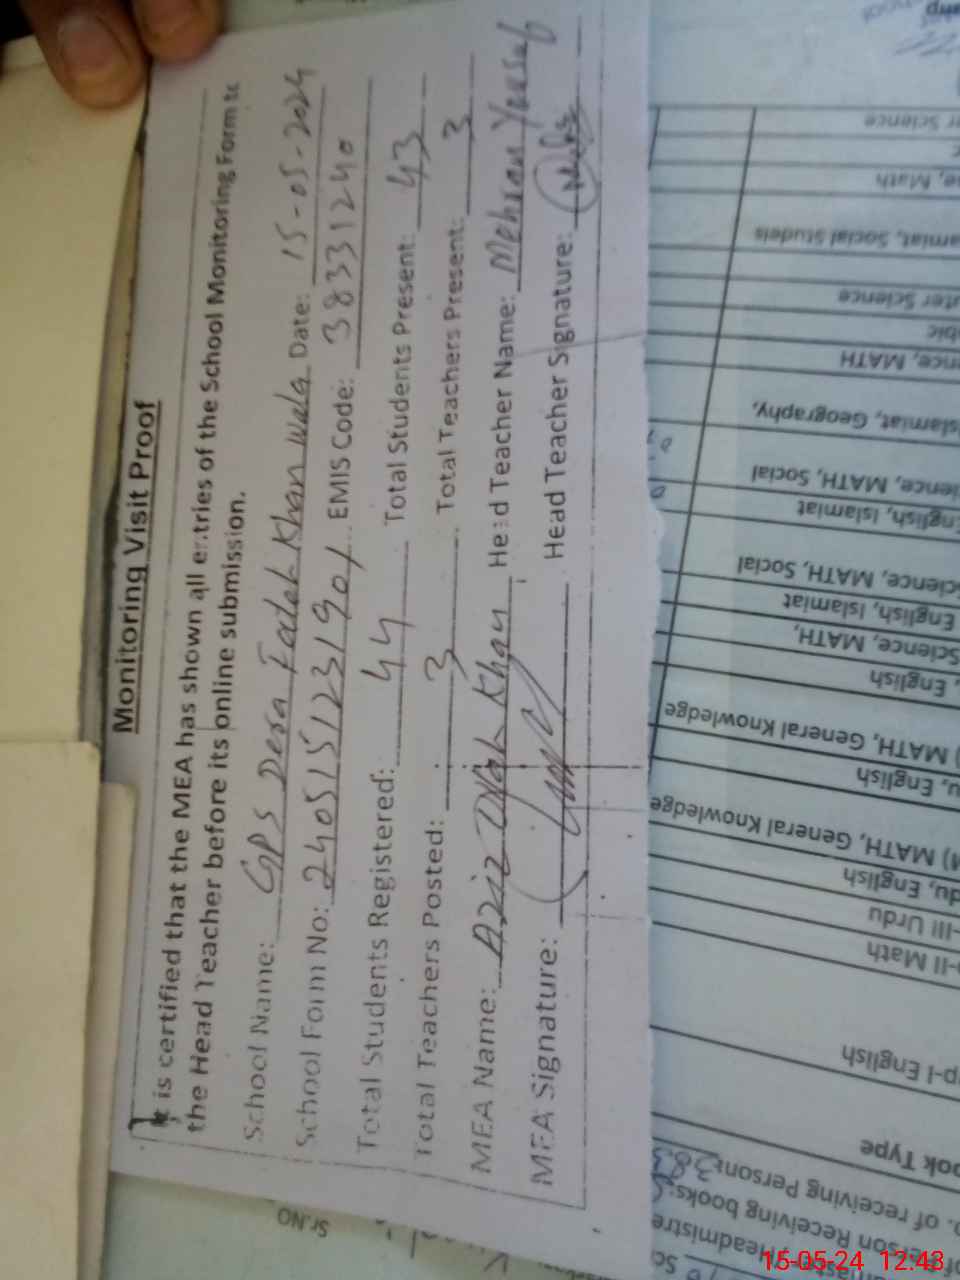 Monitoring Visit Proof
It is certified that the MEA has shown all entries of the School Monitoring Form to
the Head Teacher before its online submission.
School Name: GPS Dera Fateh Khan wala Date: 15-05-2024
School Form No: 240515123190 EMIS Code: 38331240
Total Students Registered: 44 Total Students Present: 43
Total Teachers Posted: 3 Total Teachers Present: 3
MEA Name: Aziz Ullah Khan Head Teacher Name: Mehran Yousaf
MEA Signature: Head Teacher Signature:
Sr.NO
ook Type
p-I English
-II Math
-III Urdu
du, English
MATH, General Knowledge
u, English
) MATH, General Knowledge
, English
Science, MATH,
English, Islamiat
Science, MATH, Social
English, Islamiat
ience, MATH, Social
slamiat, Geography,
nce, MATH
bic
uter Science
amiat, Social Studeis
e, Math
r Science
. of receiving Person:
erson Receiving books:
15-05-24 12:43